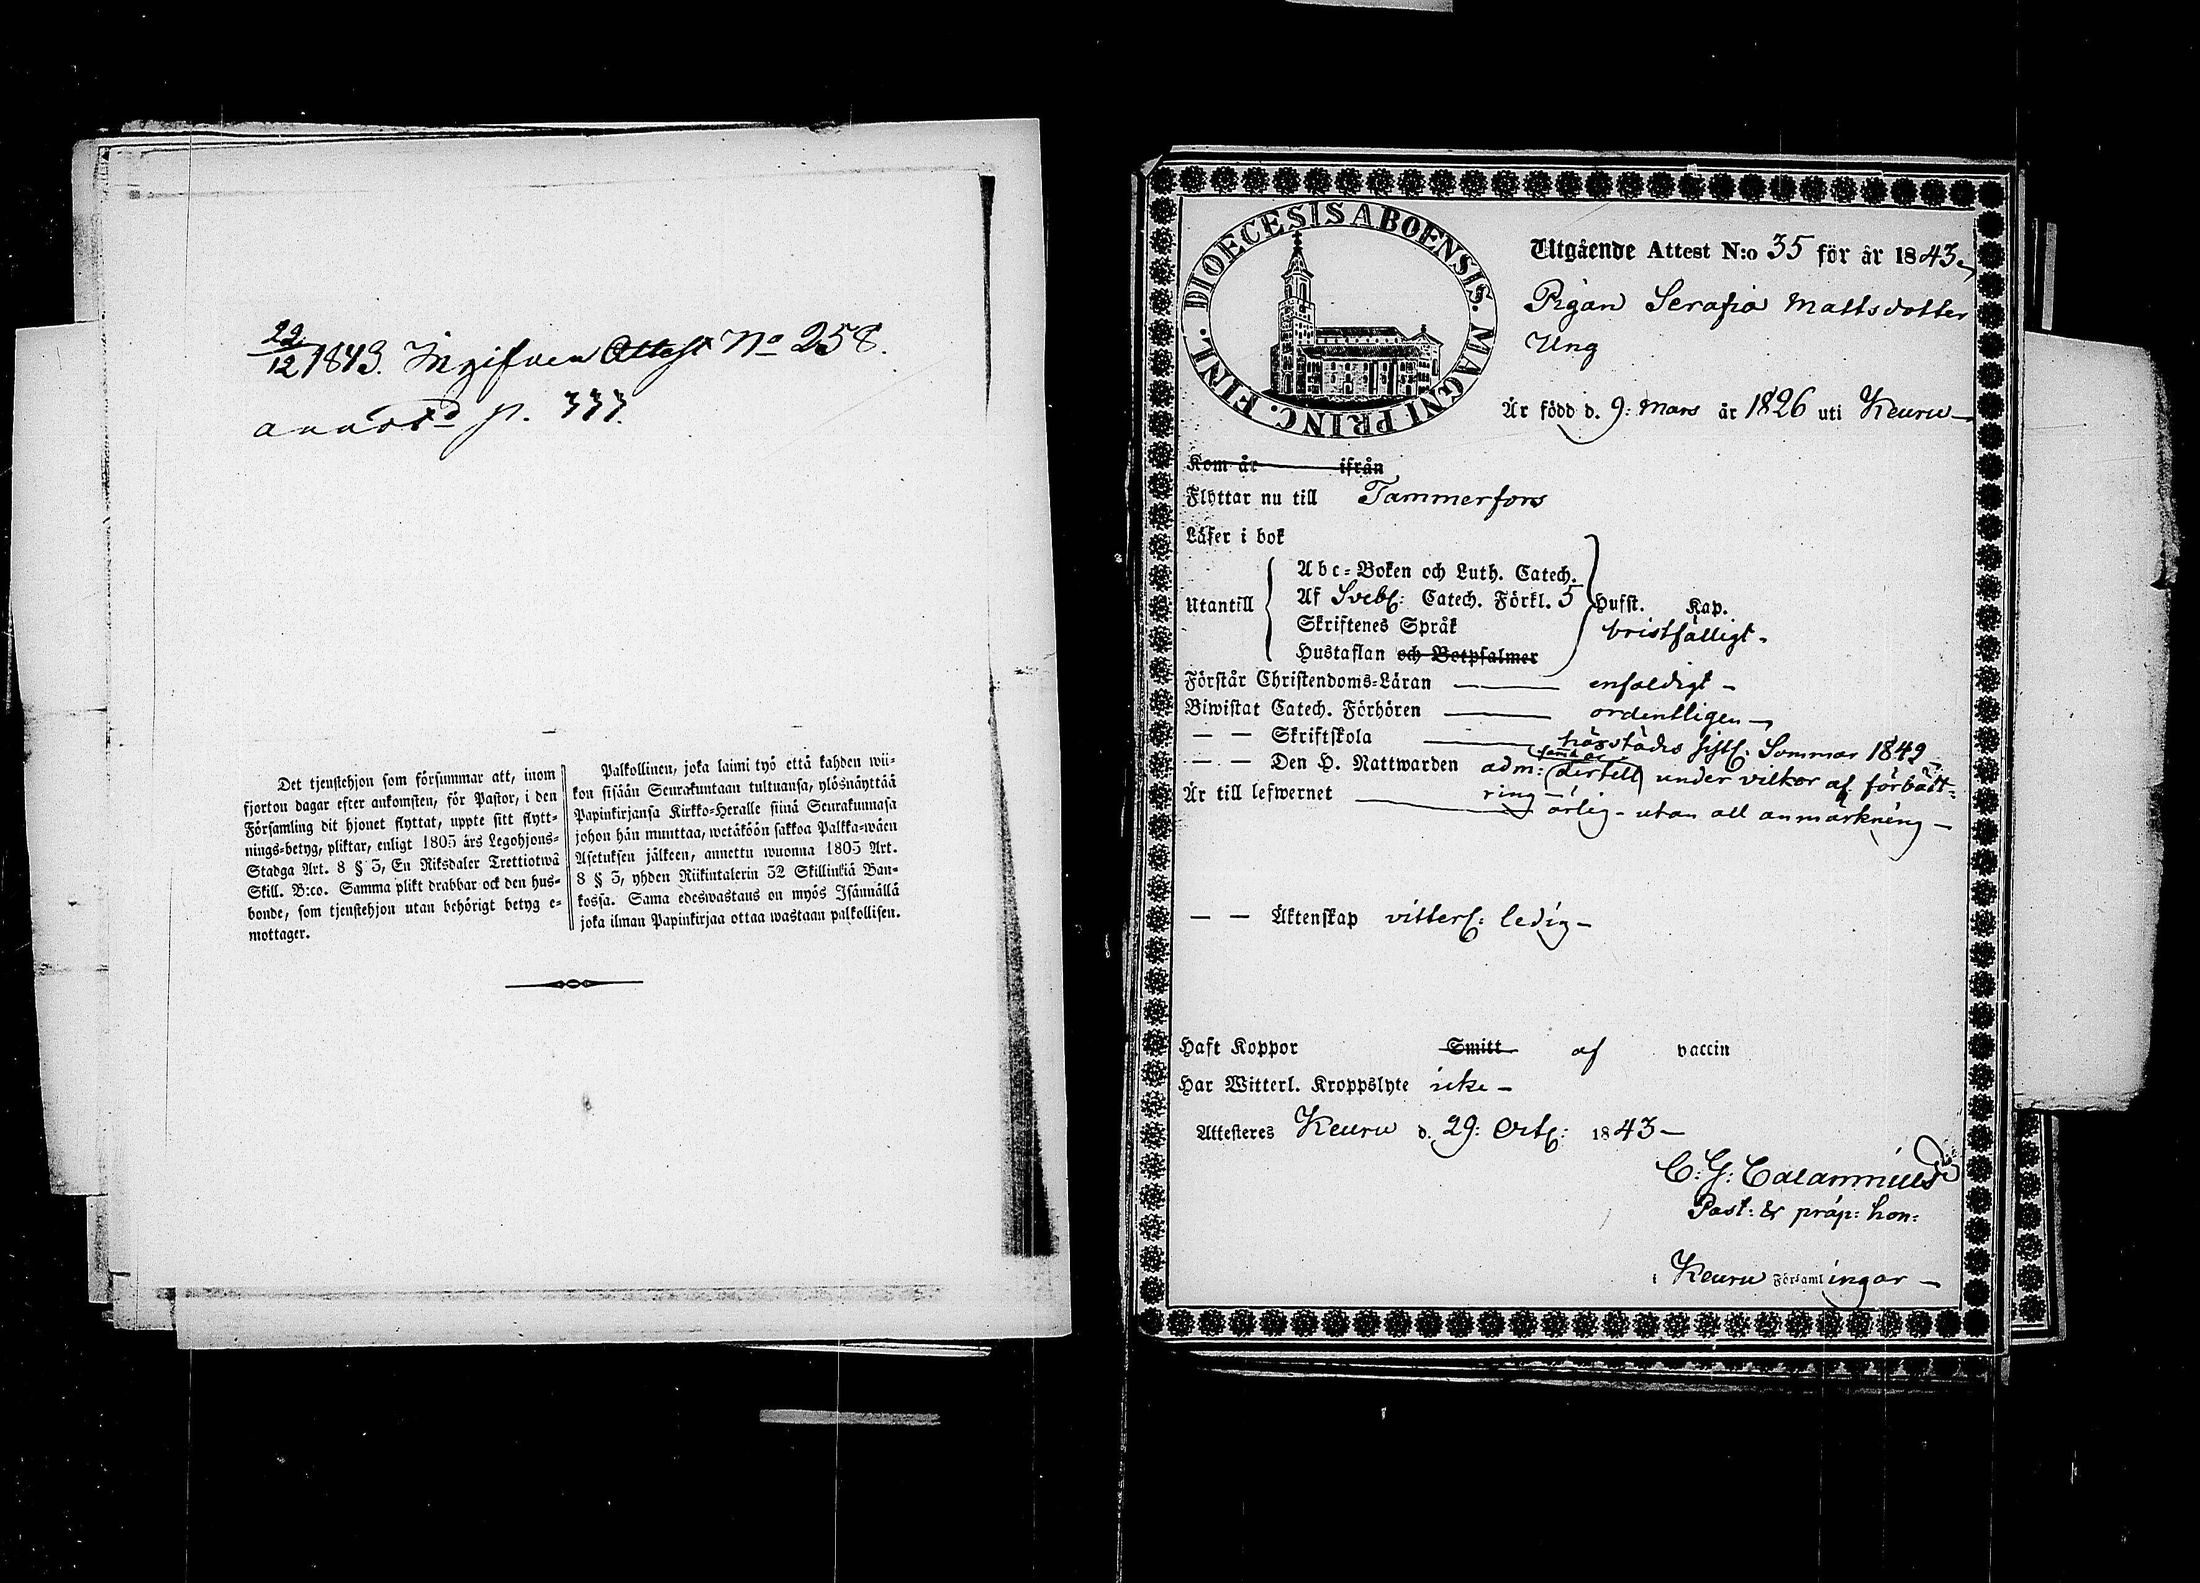 22/12 1843. Ingifven Attest No 258.
annotd p. 333.
Det tjenstehjon som försummar att, inom
fjorton dagar efter ankomsten, för Pastor, i den
Församling dit hjonet flyttat, uppte sitt flytt-
nings-betyg, pliktar, enligt 1805 års Legohjons-
Stadga Art. 8 § 5, En Riksdaler Trettiotwå
Skill. B:co. Samma plikt drabbar ock den hus-
bonde, som tjenstehjon utan behörigt betyg e-
mottager.
Palkollinen, joka laimi työ että kahden wii-
kon sisään Seurakuntaan tultuansa, ylösnäyttää
Papinkirjansa Kirkko-Heralle siinä Seurakunnasa
johon hän muuttaa, wetäköön sakkoa Palkka-wäen
Asetuksen jälkeen, annettu wuonna 1805 Art.
8 § 5, yhden Riikintalerin 32 Skillinkiä Ban-
kossa. Sama edeswastaus on myös Isännällä
joka ilman Papinkirjaa ottaa wastaan palkollisen.
FINL. DIOECESIS ABOENSIS. MAGNI PRINC.
Utgående Attest N:o 35 för år 1843
Pigan Serafia Mattsdotter
Ung
Är född d. 9: Mars år 1826 uti Keuru
Kom år ifrån
Flyttar nu till Tammerfors
Läser i bok
Utantill
Abc-Boken och Luth. Catech.
Af Sveb: Catech. Förkl. 5 Hufst. Kap.
Skriftenes Språk
bristfälligt
Hustaflan och Botpsalmer
Förstår Christendoms-Läran enfaldigt
Biwistat Catech. Förhören ordentligen
— — Skriftskola härstädes sistl: Sommar 1842
— — Den H. Nattwarden adm: dertill under vilkor af förbätt-
ring
Är till lefwernet ärlig - utan all anmärkning
— — Äktenskap vitterl: ledig
Haft Koppor Smitt af vaccin
Har Witterl. Kroppslyte icke
Attesteres Keuru d. 29: Oct: 1843
C: G: Calamnius
Past: & præp: hon:
i Keuru Församlingar